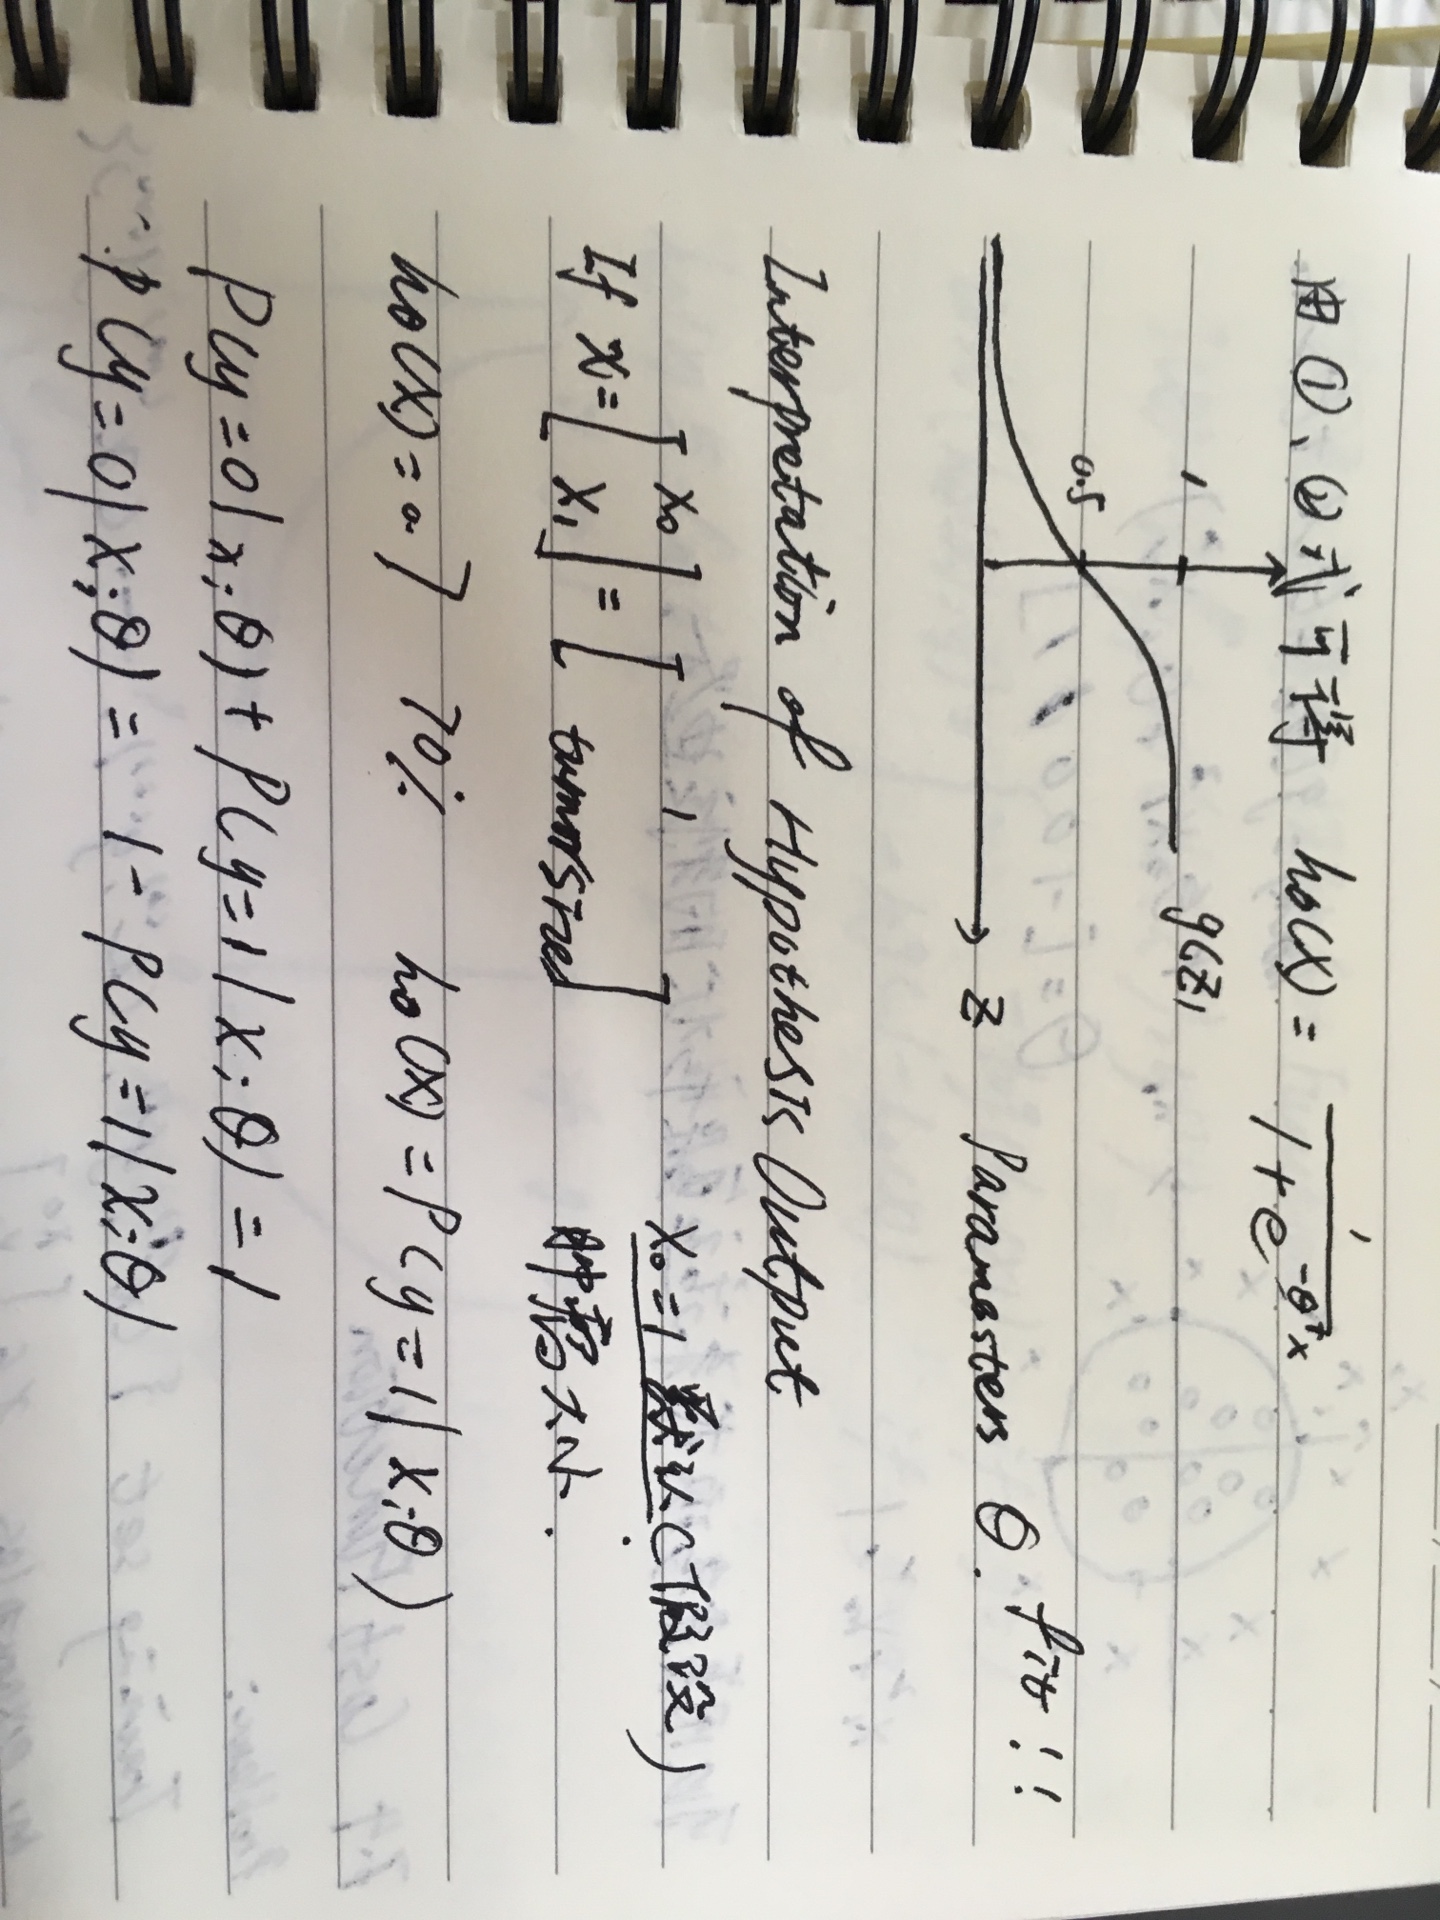 由①、②式可得 hθ(x) = 1 / (1+e^(-θ^T x))
1
g(z)
0.5
z
Paramesters θ. fit!!
Interpretation of Hypothesis Output
If x = [x₀ x₁] = [1 tumorsize]
x₀=1 默认(假设)
肿瘤大小.
hθ(x)=0.7 70% hθ(x)=P(y=1|x;θ)
P(y=0|x;θ)+P(y=1|x;θ)=1
P(y=0|x;θ)= 1-P(y=1|x;θ)